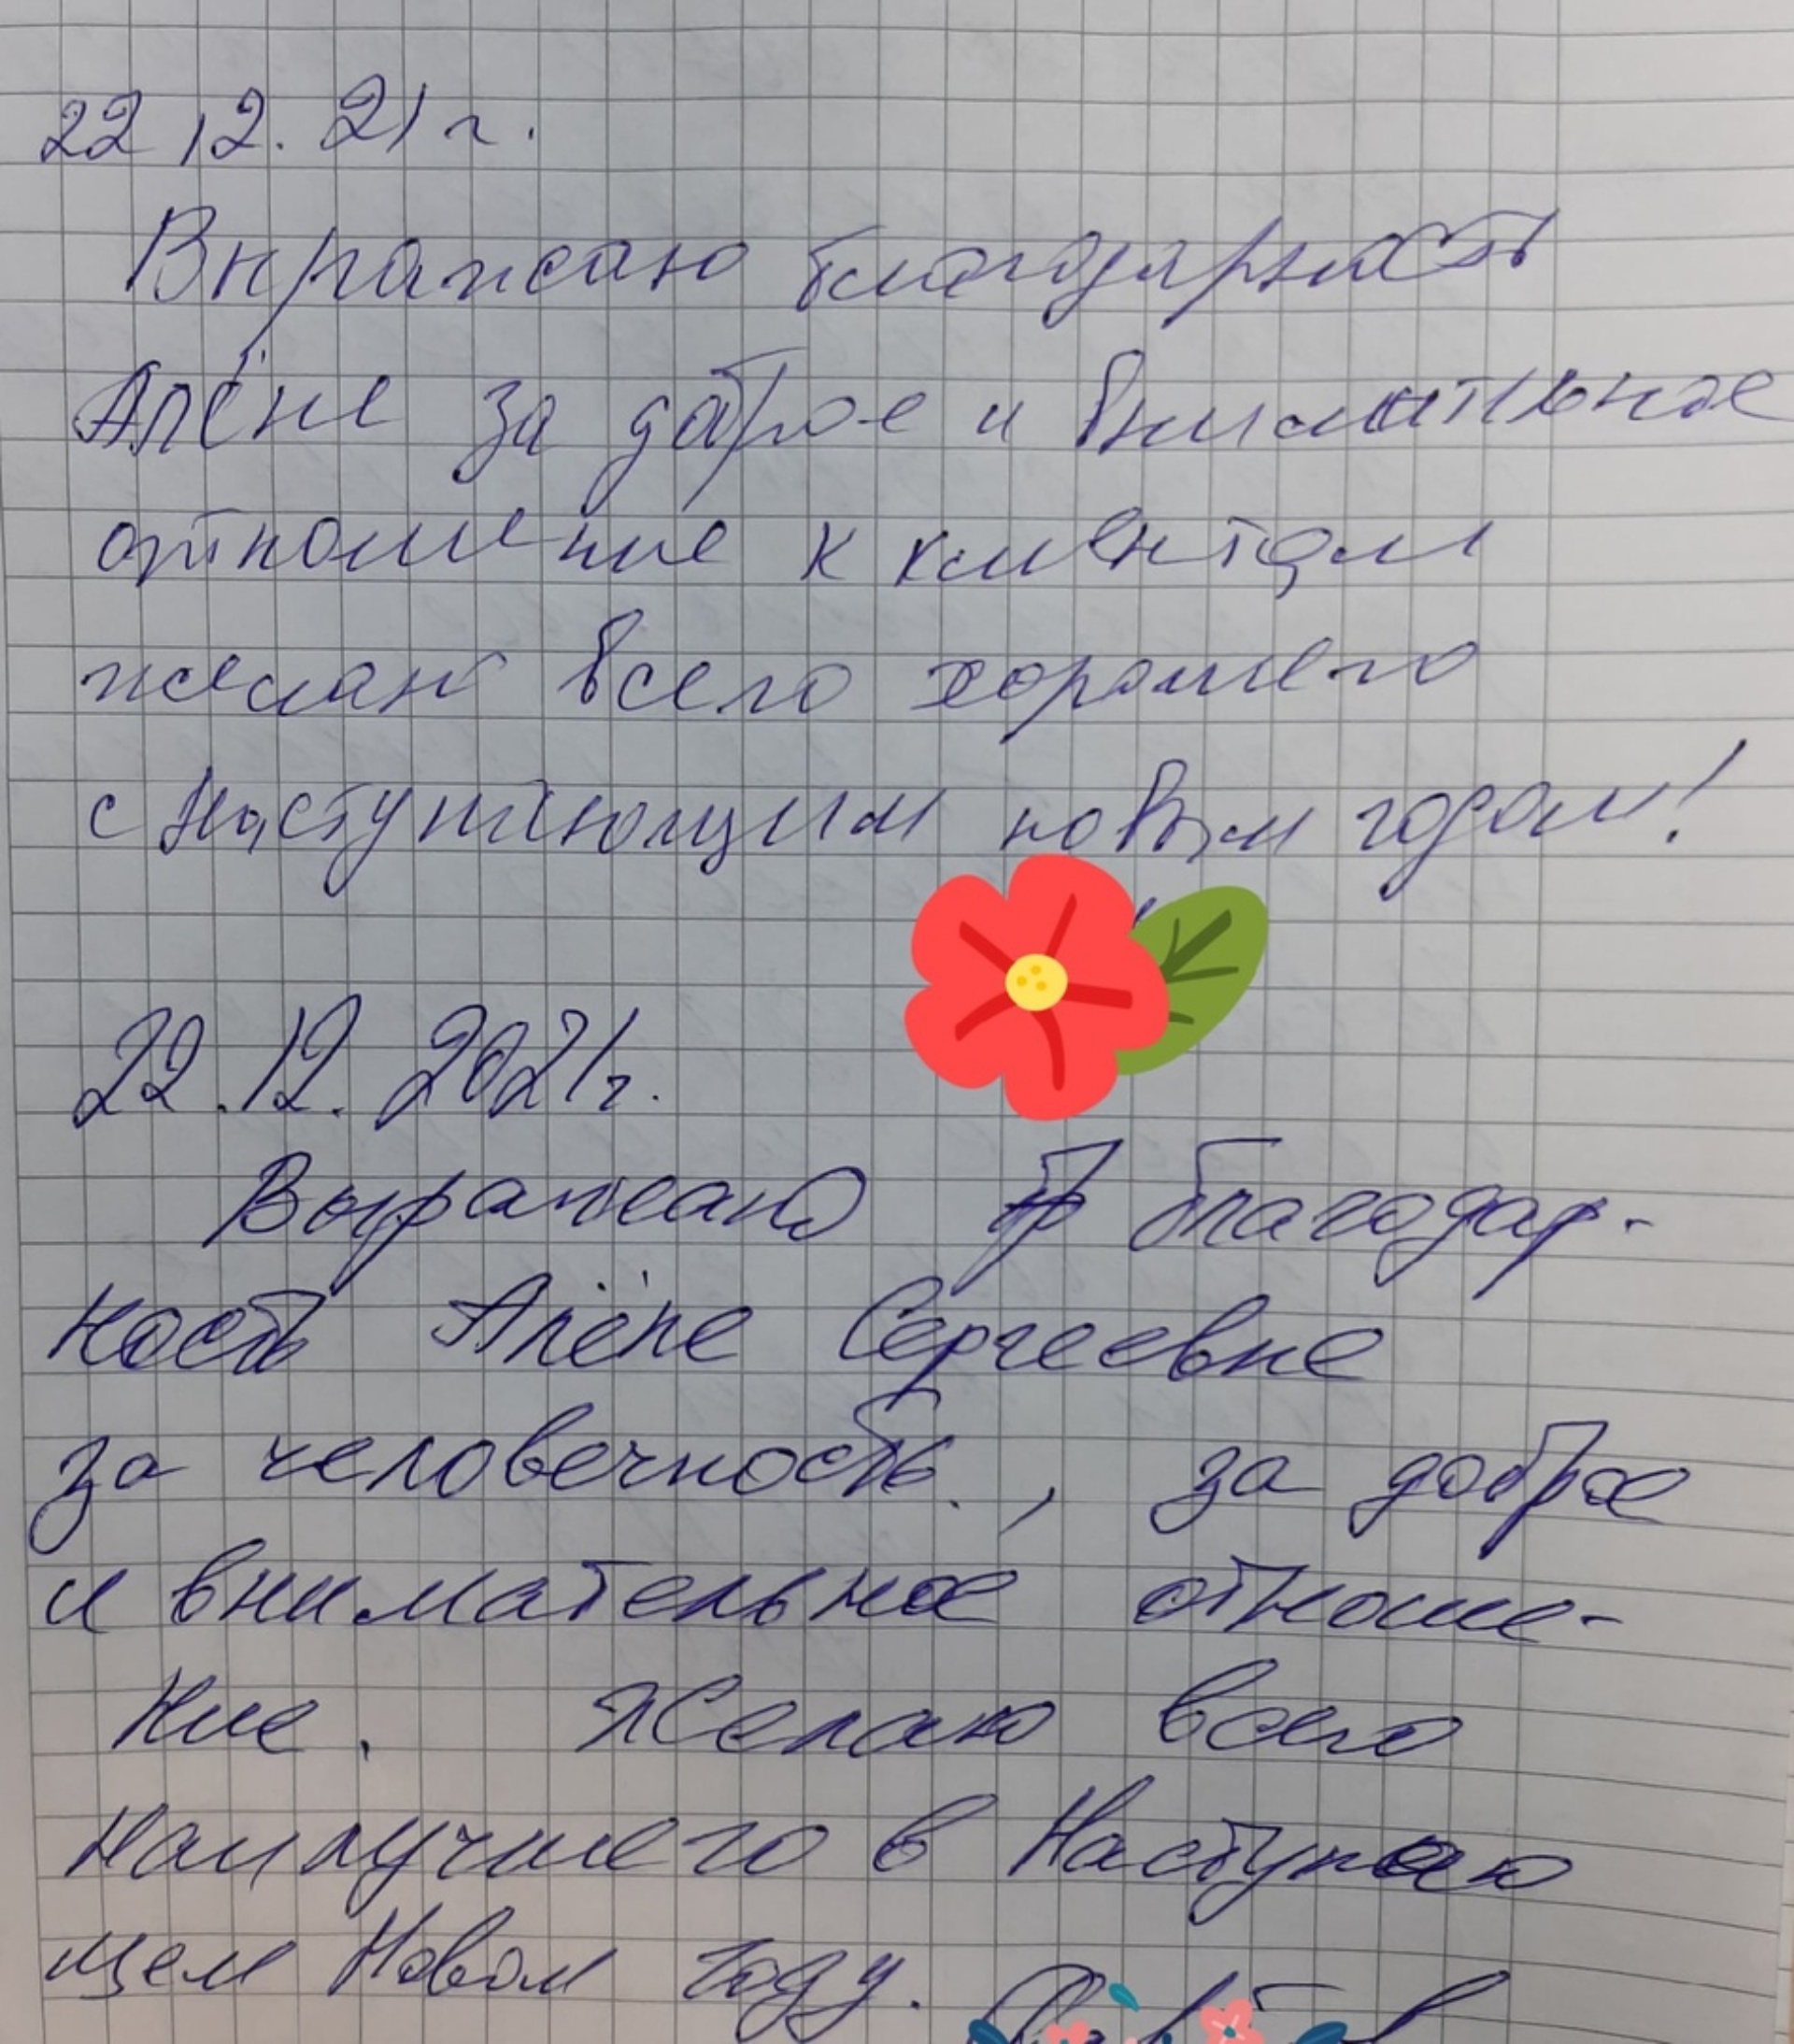 22 12. 21 г.
Выражаю благодарность
Алёне за доброе и внимательное
отношение к клиентам
желаю всего хорошего
с наступающим новым годом!
22.12.2021г.
Выражаю благодар-
ность Алёне Сергеевне
за человечность, за доброе
и внимательное отноше-
ние. Желаю всего
наилучшего в Наступаю
щем Новом году.